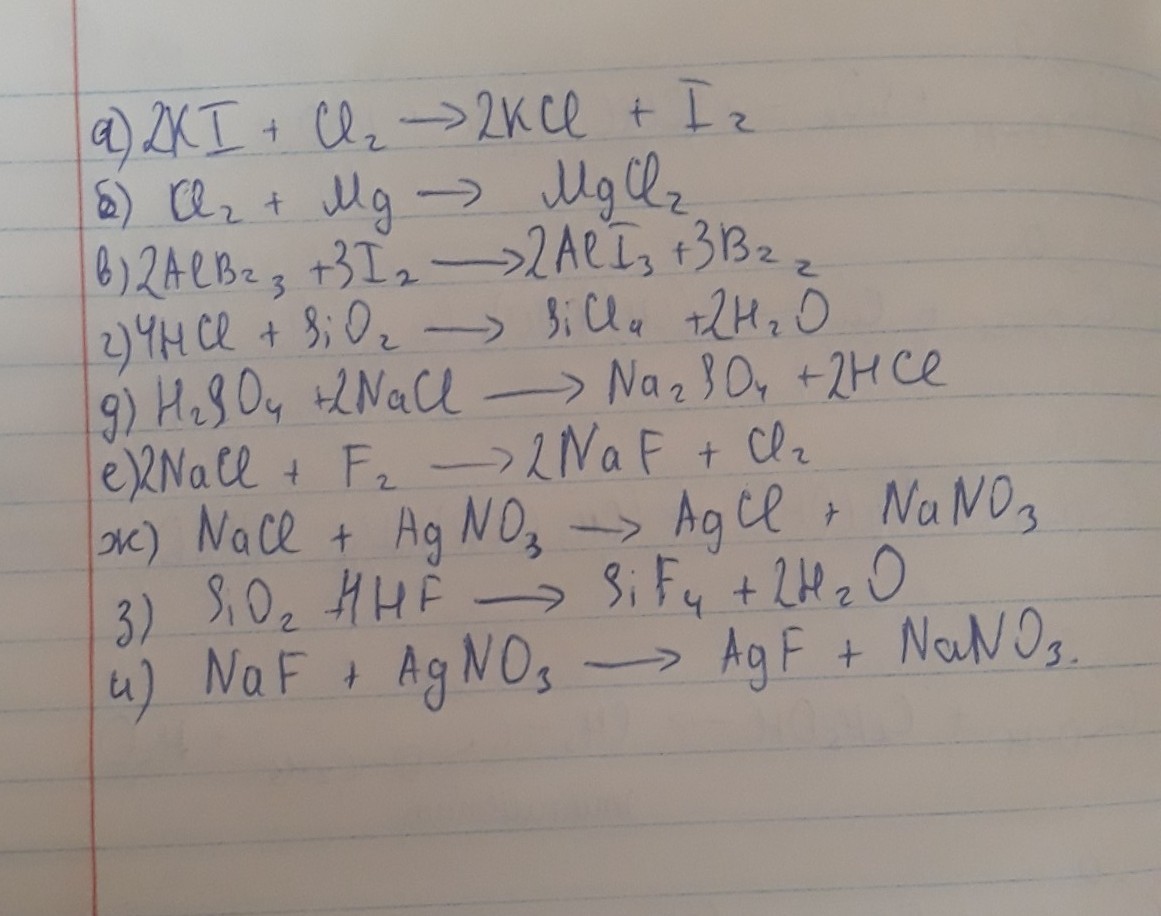 а) 2KI + Cl₂ → 2KCl + I₂
б) Cl₂ + Mg → MgCl₂
в) 2AlBr₃ + 3I₂ → 2AlI₃ + 3Br₂
г) 4HCl + SiO₂ → SiCl₄ + 2H₂O
д) H₂SO₄ + 2NaCl → Na₂SO₄ + 2HCl
е) 2NaCl + F₂ → 2NaF + Cl₂
ж) NaCl + AgNO₃ → AgCl + NaNO₃
з) SiO₂ 4HF → SiF₄ + 2H₂O
и) NaF + AgNO₃ → AgF + NaNO₃.